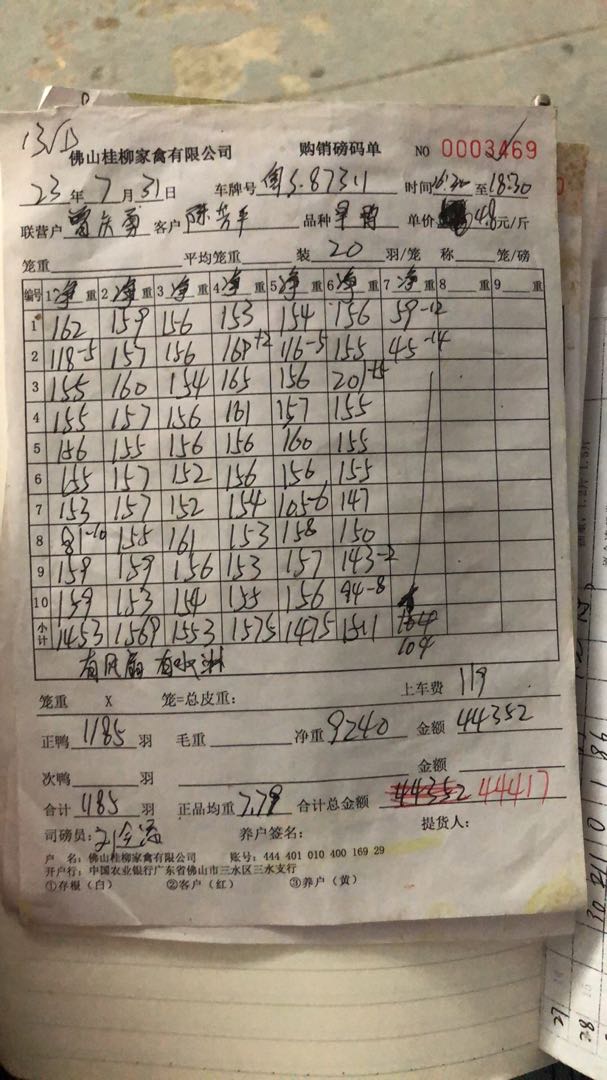 13/D
佛山桂柳家禽有限公司 购销磅码单 NO 0003469
23年7月31日 车牌号 S.87311 时间 至18:30
联营户 客户 品种 单价 4.8元/斤
笼重 平均笼重 装 20 羽/笼 称 笼/磅
编号 1净重 2净重 3净重 4净重 5净重 6净重 7净重 8 重 9 重
1 162 159 156 153 154 156 59-12
2 118-5 157 156 +2 116-5 155 45-14
3 155 160 154 165 156 201
4 155 157 156 161 157 155
5 156 155 156 156 160 155
6 155 157 152 156 156 155
7 153 157 152 154 105-6 147
8 81-10 155 161 153 158 150
9 159 159 156 153 157 143-2
10 159 153 154 155 156 94-8
小计 1453 1569 1553 1575 1475 1511 104
104
有风扇 有水淋
笼重 X 笼=总皮重: 上车费 119
正鸭 1185 羽 毛重 净重 9240 金额 44352
次鸭 羽 金额
合计 1185 羽 正品均重 7.79 合计总金额 44352 44417
司磅员: 养户签名: 提货人:
户 名:佛山桂柳家禽有限公司 账号:444 401 010 400 169 29
开户行:中国农业银行广东省佛山市三水区三水支行
①存根(白) ②客户(红) ③养户(黄)
27
28